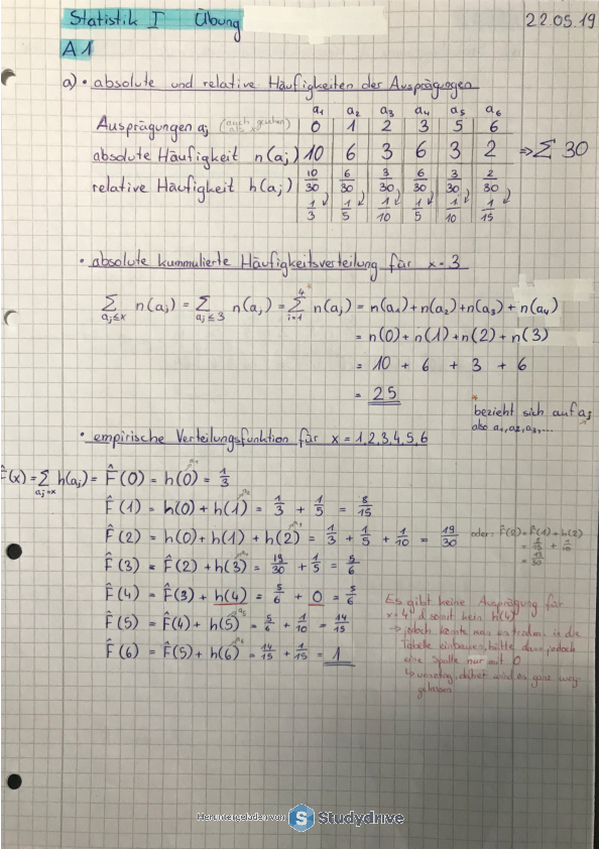 Statistik I Übung 22.05.19
A1
a) • absolute und relative Häufigkeiten der Ausprägungen
a₁ a₂ a₃ a₄ a₅ a₆
Ausprägungen aⱼ (auch gesehen als x) 0 1 2 3 5 6
absolute Häufigkeit n(aⱼ) 10 6 3 6 3 2 ⇒ Σ 30
relative Häufigkeit h(aⱼ) 10/30 6/30 3/30 6/30 3/30 2/30
1/3 1/5 1/10 1/5 1/10 1/15
• absolute kummulierte Häufigkeitsverteilung für x = 3
Σ aⱼ≤x n(aⱼ) = Σ aⱼ≤3 n(aⱼ) = Σ⁴ i=1 n(aⱼ) = n(a₁) + n(a₂) + n(a₃) + n(a₄)
= n(0) + n(1) + n(2) + n(3)
= 10 + 6 + 3 + 6
= 25
* bezieht sich auf aⱼ
also a₁, a₂, a₃,...
• empirische Verteilungsfunktion für x = 1,2,3,4,5,6
F̂(x) = Σ h(aⱼ) = F̂(0) = h(0) = 1/3
F̂(1) = h(0) + h(1) = 1/3 + 1/5 = 8/15
F̂(2) = h(0) + h(1) + h(2) = 1/3 + 1/5 + 1/10 = 19/30 oder: F̂(2) = F̂(1) + h(2)
= 8/15 + 1/10
= 19/30
F̂(3) = F̂(2) + h(3) = 19/30 + 1/5 = 5/6
F̂(4) = F̂(3) + h(4) = 5/6 + 0 = 5/6
F̂(5) = F̂(4) + h(5) = 5/6 + 1/10 = 14/15
F̂(6) = F̂(5) + h(6) = 14/15 + 1/15 = 1
Es gibt keine Ausprägung für
x=4 & somit kein h(4)
→ jedoch könnte man es trotzdem in die
Tabelle einbauen, hätte dann jedoch
eine Spalte nur mit 0
↳ unnötig, daher wird es ganz weg-
gelassen
Heruntergeladen von Studydrive